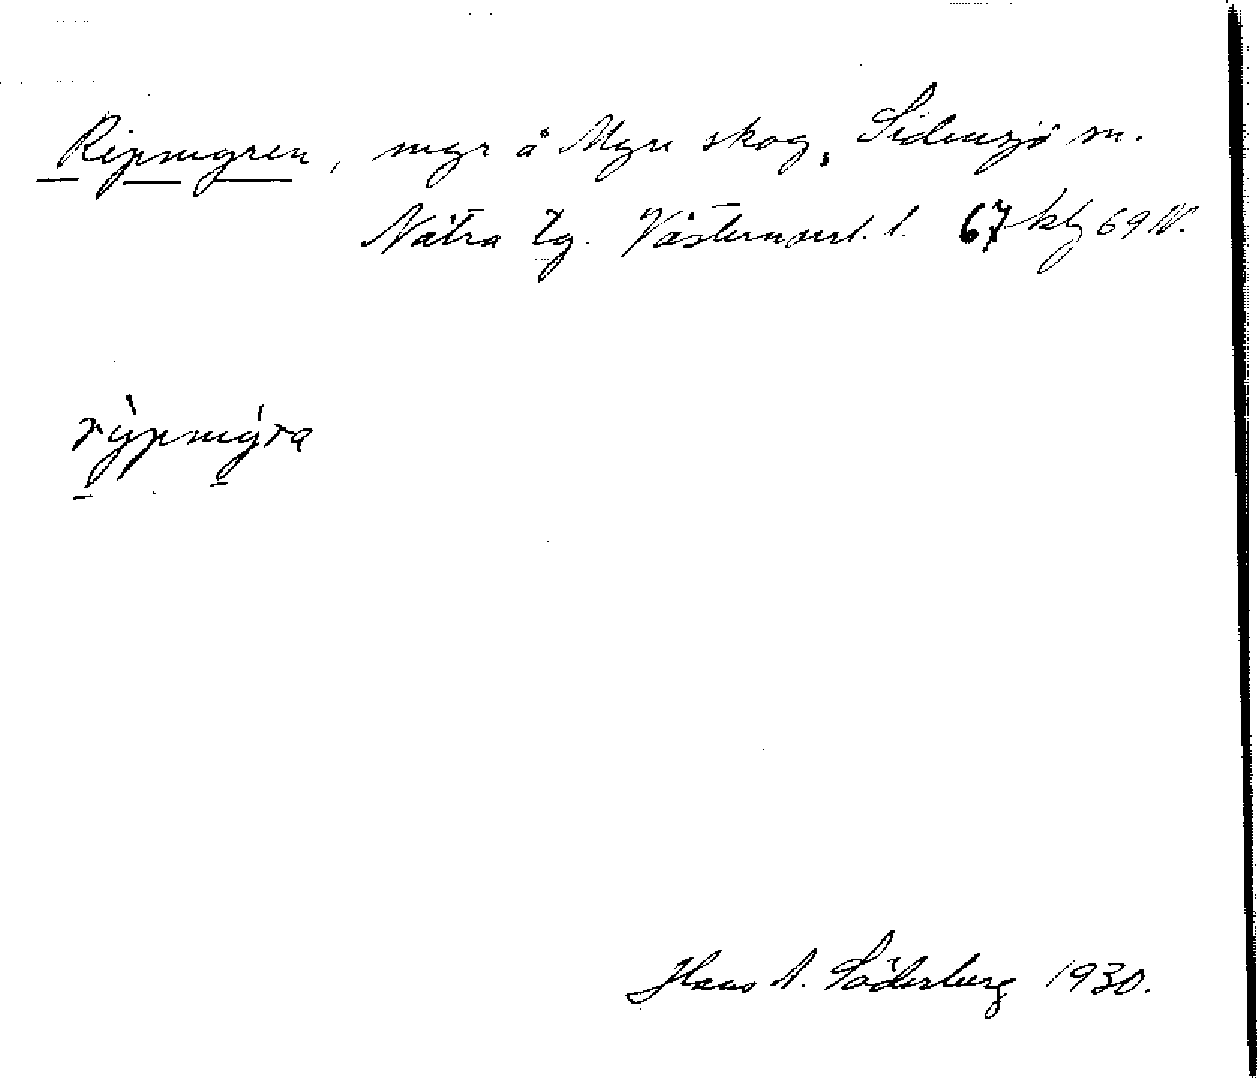 Ripmyren, myr å Myre skog, Sidensjö sn.
Nätra tg. Västernorrl. l. 67 kbl 69 N.
rỳpmýra
Hans A. Söderberg 1930.